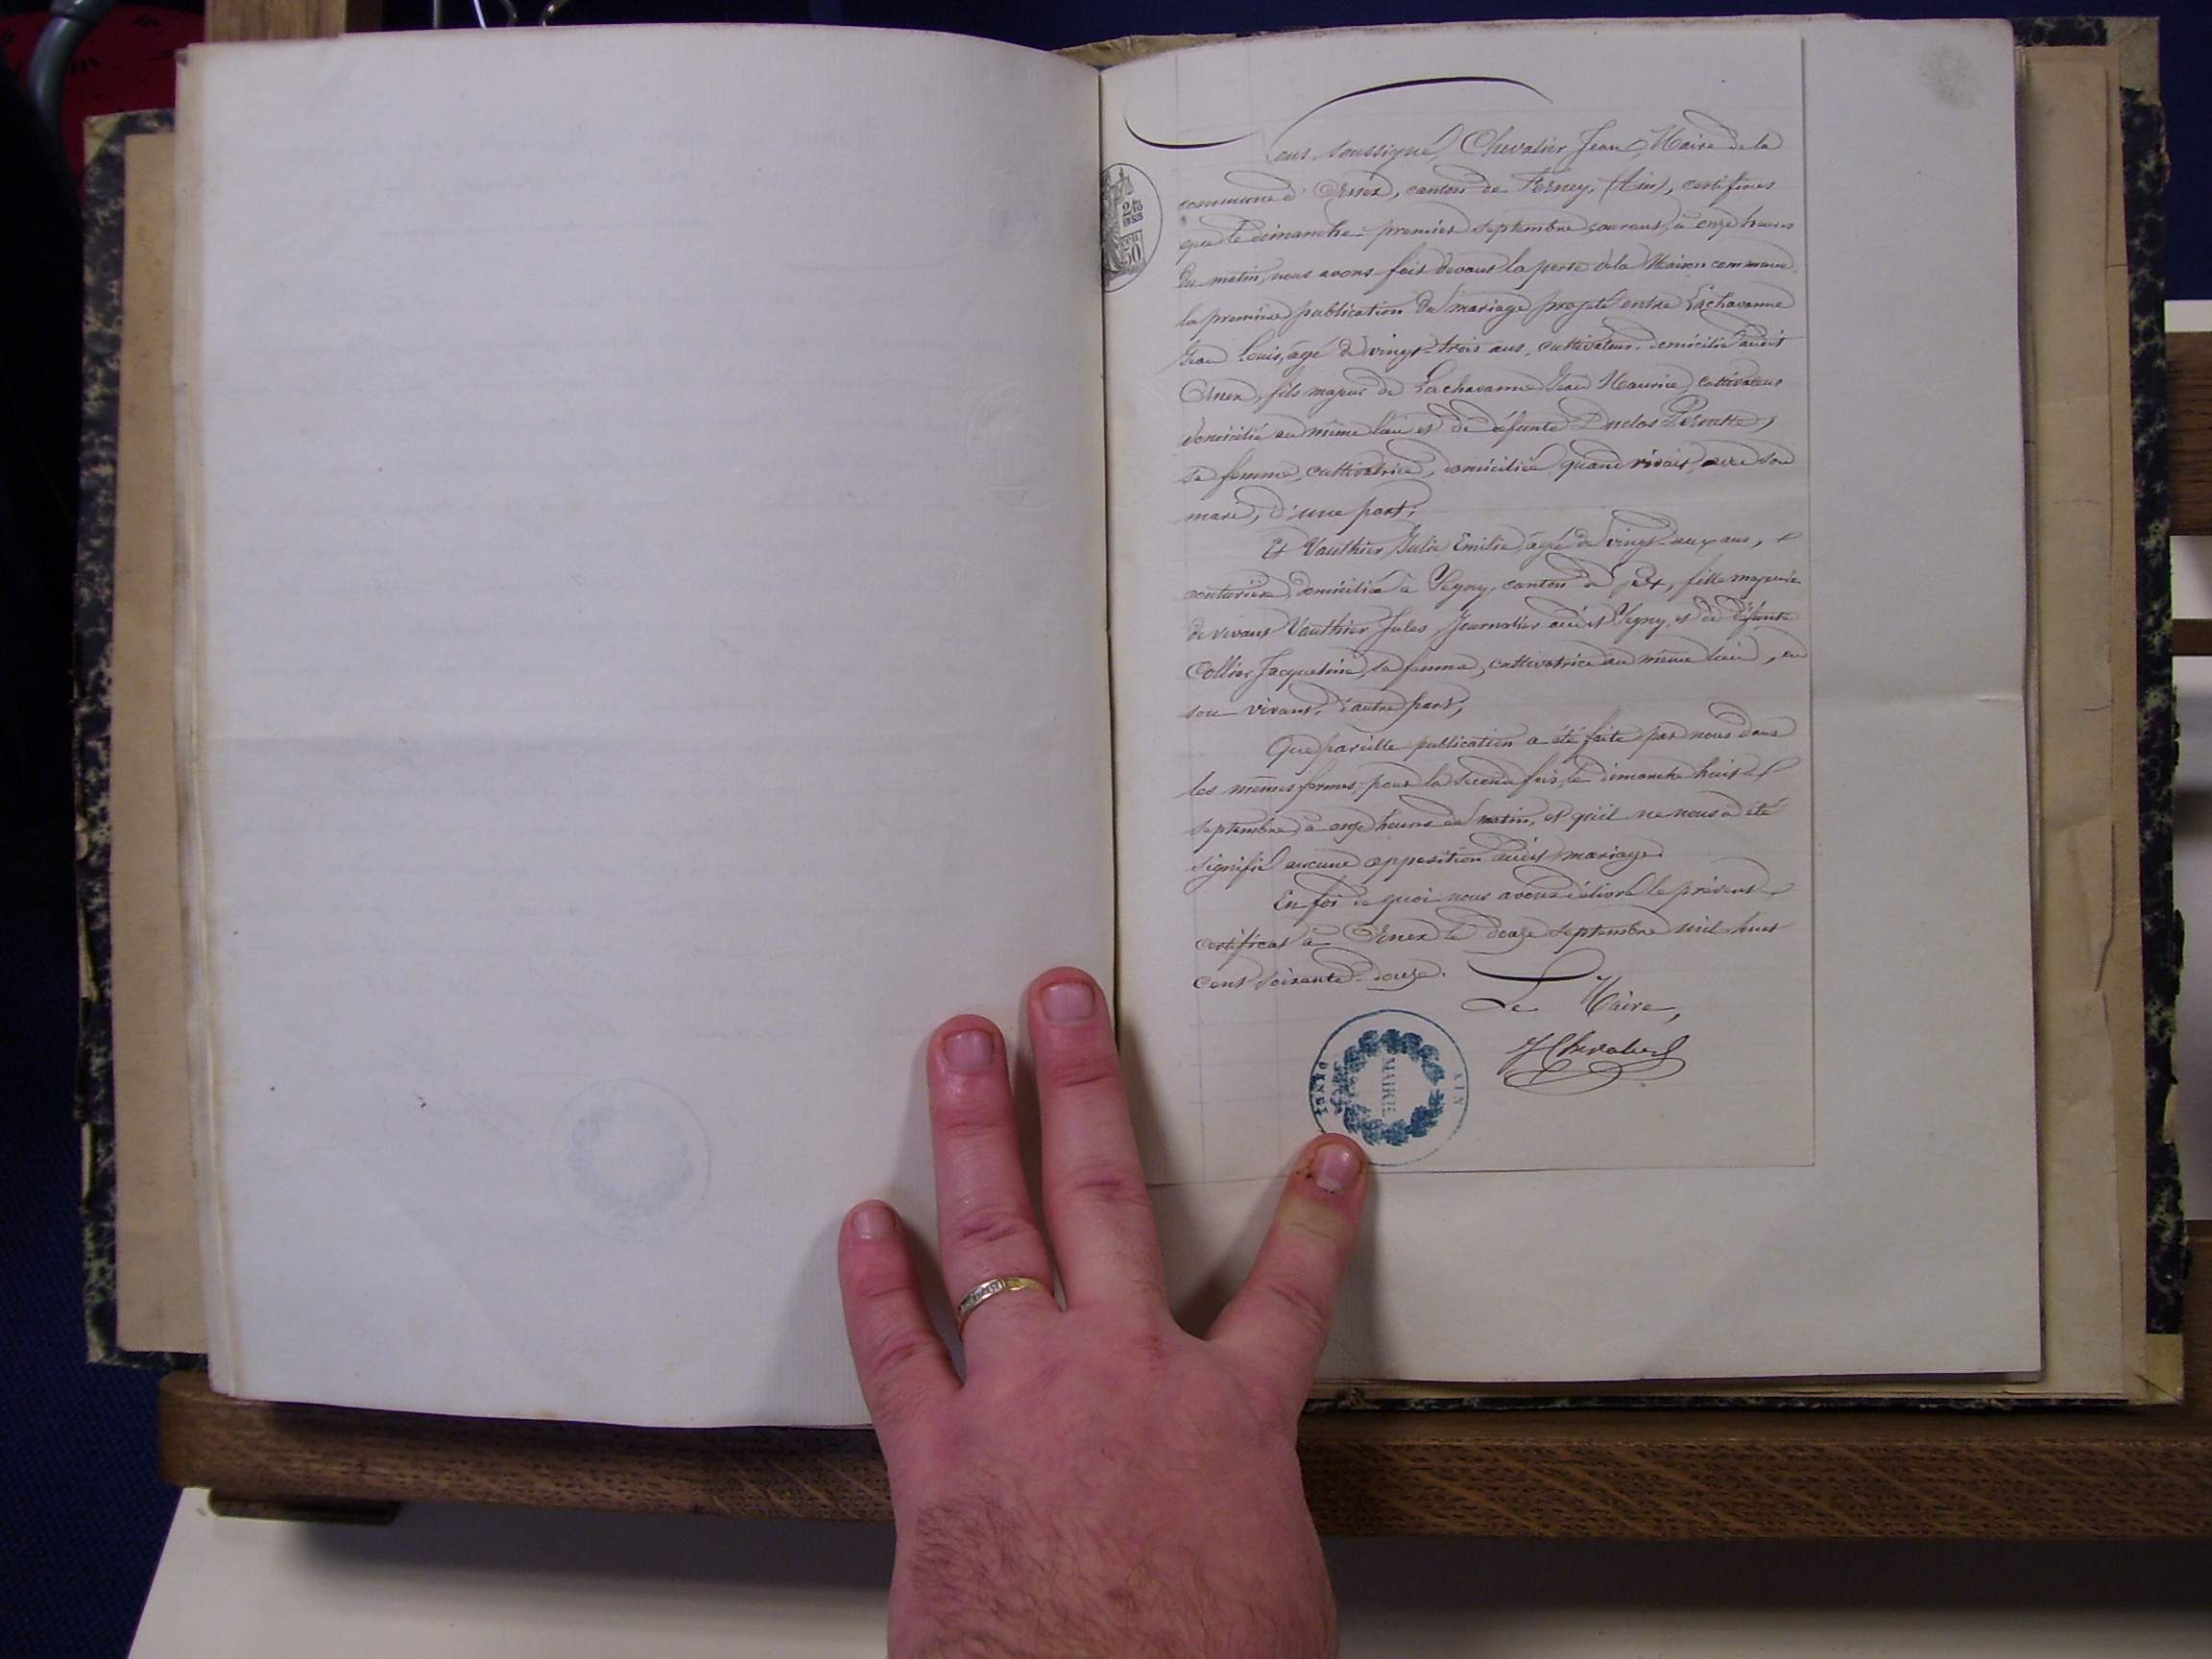 Nous, soussigné, Chevalier Jean, Maire de la
commune d'Ornex, canton de Ferney, (Ain), certifions
que le dimanche premier septembre courant, à onze heures
du matin, nous avons fait devant la porte de la Maison commune,
la première publication du mariage projeté entre Lachavanne
Jean Louis, âgé de vingt-trois ans, cultivateur, domicilié audit
Ornex, fils majeur de Lachavanne Jean Maurice, cultivateur
domicilié au même lieu et de défunte Duclos Pernette,
sa femme, cultivatrice, domiciliée quand vivait, avec son
mari, d'une part;
Et Vauthier Julie Emilie, âgée de vingt- ans,
couturière, domiciliée à Segny, canton de Gex, fille majeure
de vivant Vauthier Jules, Journalier audit Segny, et de défunte
Collier Jacqueline, sa femme, cultivatrice au même lieu, en
son vivant, d'autre part;
Que pareille publication a été faite par nous dans
les mêmes formes, pour la seconde fois, le dimanche huit
septembre, à onze heures du matin, et qu'il ne nous a été
signifié aucune opposition audit mariage.
En foi de quoi nous avons délivré le présent
certificat à Ornex le douze septembre mil huit
cent soixante-douze.
Le Maire,
J Chevalier
MAIRIE
AIN
50